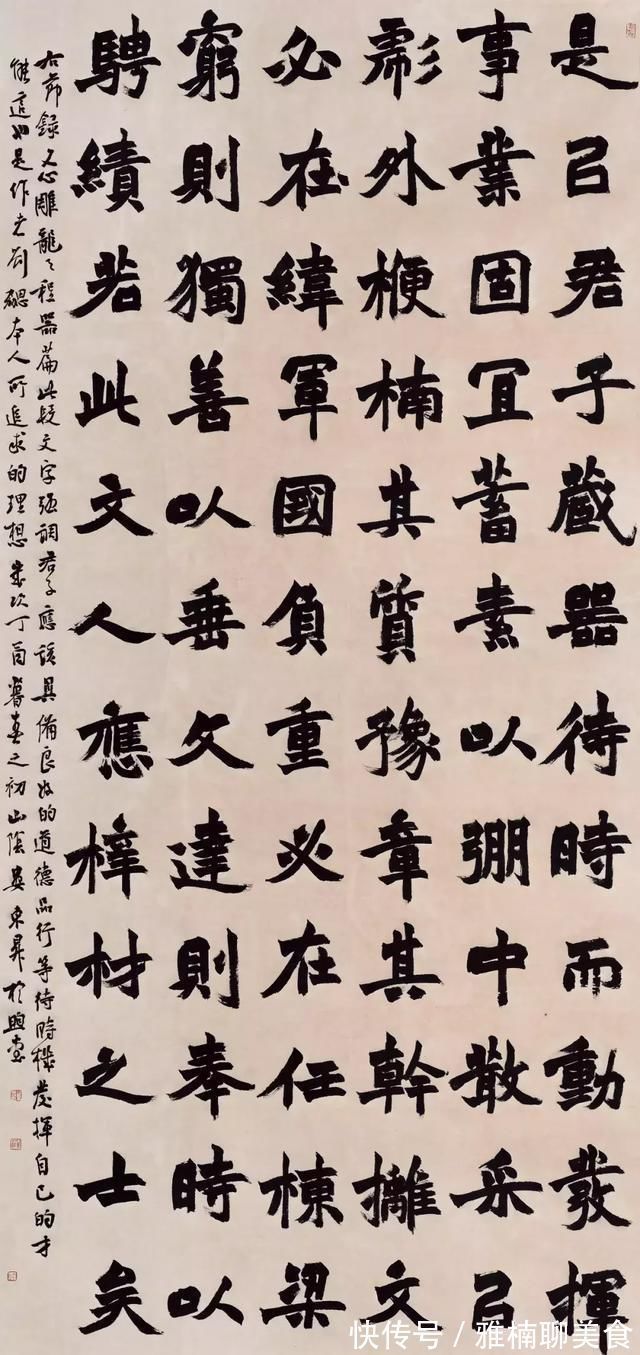 是㠯君子藏器待時而動發揮
事業固宜蓄素以弸中散采㠯
彪外楩楠其質豫章其幹摛文
必在緯軍國負重必在任棟梁
窮則獨善以垂文達則奉時以
騁績若此文人應梓材之士矣
右節錄文心雕龍之程器篇此段文字强調君子應該具備良好的道德品行等待時機發揮自己的才
能這也是作者劉勰本人所追求的理想歲次丁酉暮春之初山陰東昇於
快传号 / 雅楠聊美食